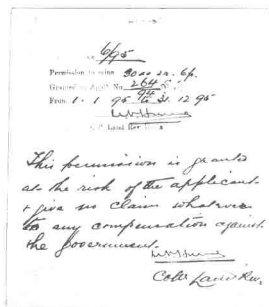 6/95
Permission to mine 30 ac 2r. 6p.
Granted on Appln No. 264/94
From 1 . 1 95 to 31. 12 95
Land Rev
This permission is granted
at the risk of the applicant
+ give no claim whatever
to any compensation against
the Government.
Colr Land Rev.